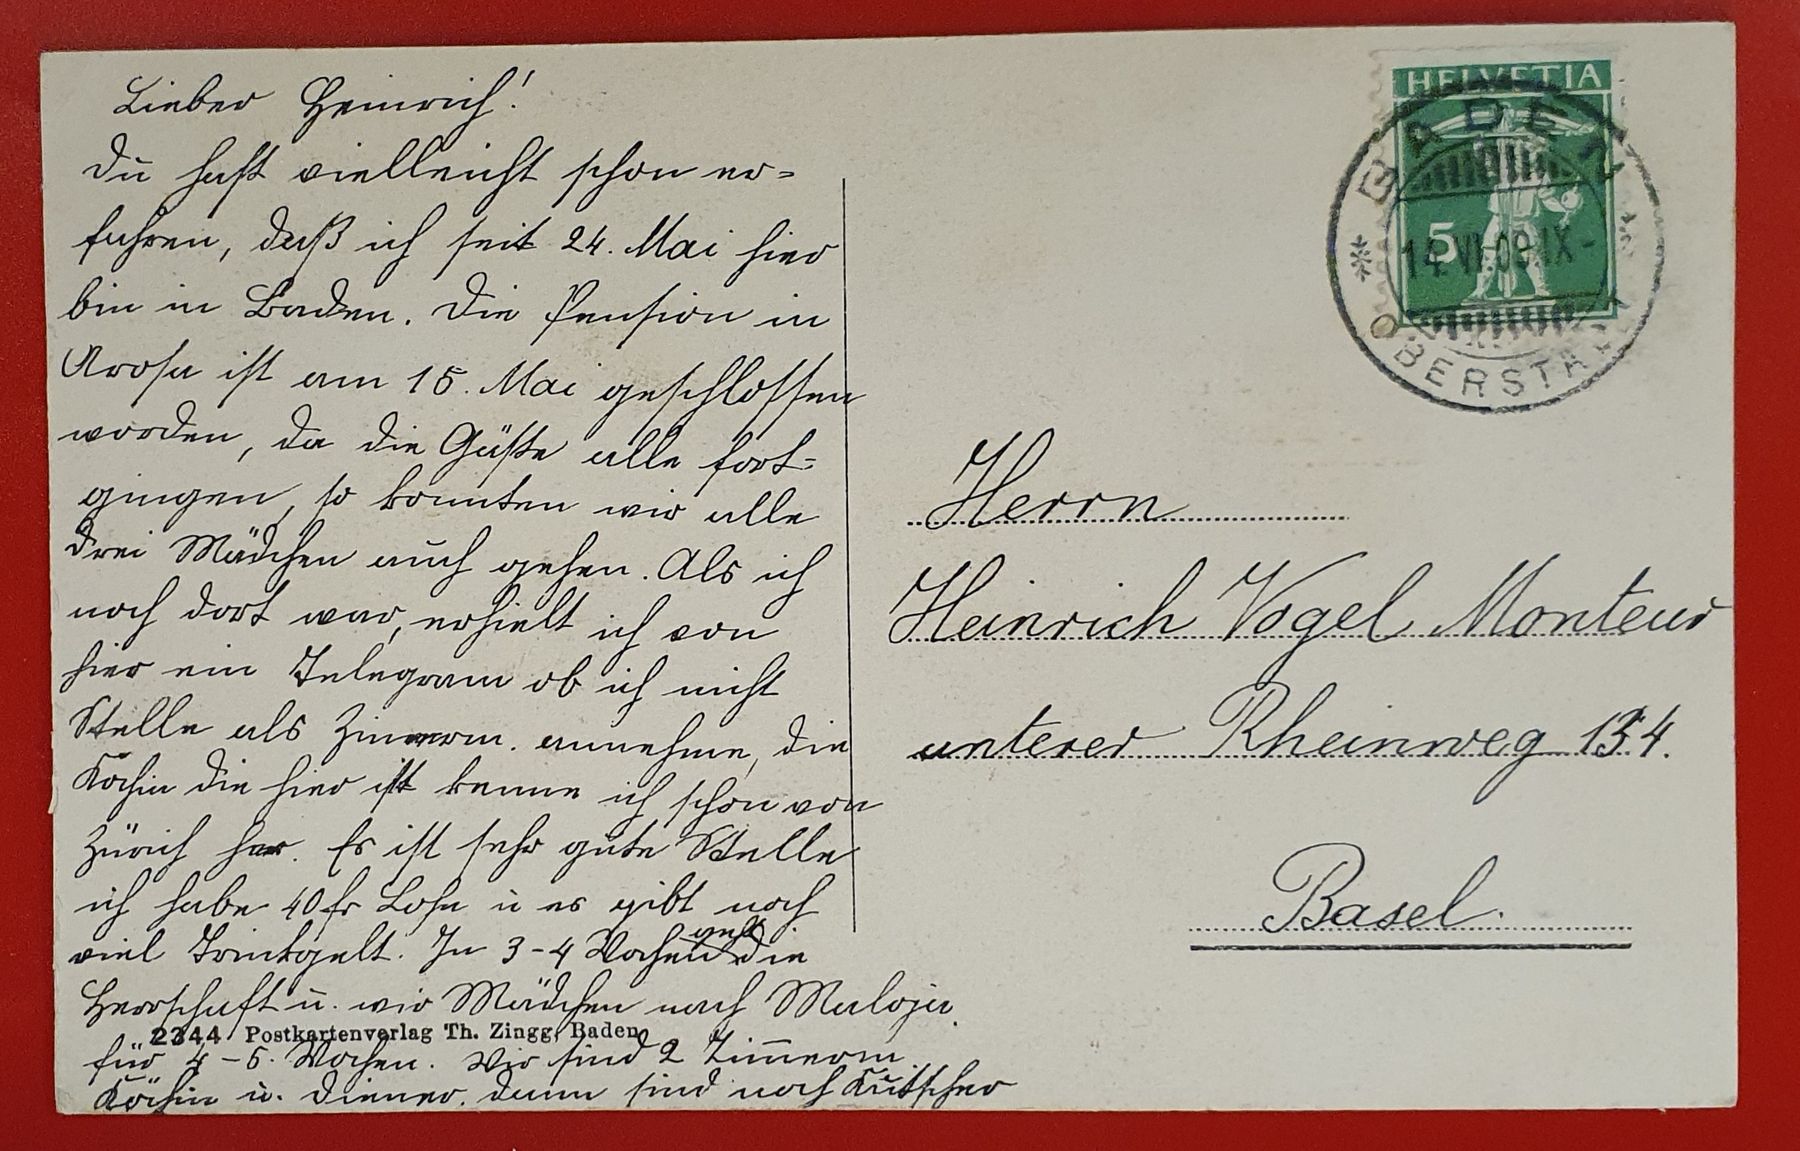 Lieber Heinrich!
Du hast vielleicht schon er=
fahren, daß ich seit 24. Mai hier
bin in Baden. Die Pension in
Arosa ist am 15. Mai geschlossen
worden, da die Gäste alle fort=
gingen, so konnten wir alle
drei Mädchen auch gehen. Als ich
noch dort war, erhielt ich von
hier ein Telegram ob ich nicht
Stelle als Zimmerm. annehme, die
Kochin die hier ist kenne ich schon von
Zürich her. Es ist sehr gute Stelle
ich habe 40 fr Lohn u es gibt noch
viel Trinkgelt. In 3-4 Wochen geht die
Herrschaft u. wir Mädchen nach Maloja.
für 4-5. Wochen. Wir sind 2 Zimmerm
Köchin u. Diener. dann sind noch Kutscher
2344 Postkartenverlag Th. Zingg, Baden
HELVETIA
5
BADEN
14.VI.09.IX-
OBERSTADT
Herrn
Heinrich Vogel Monteur
unterer Rheinweg 134.
Basel.